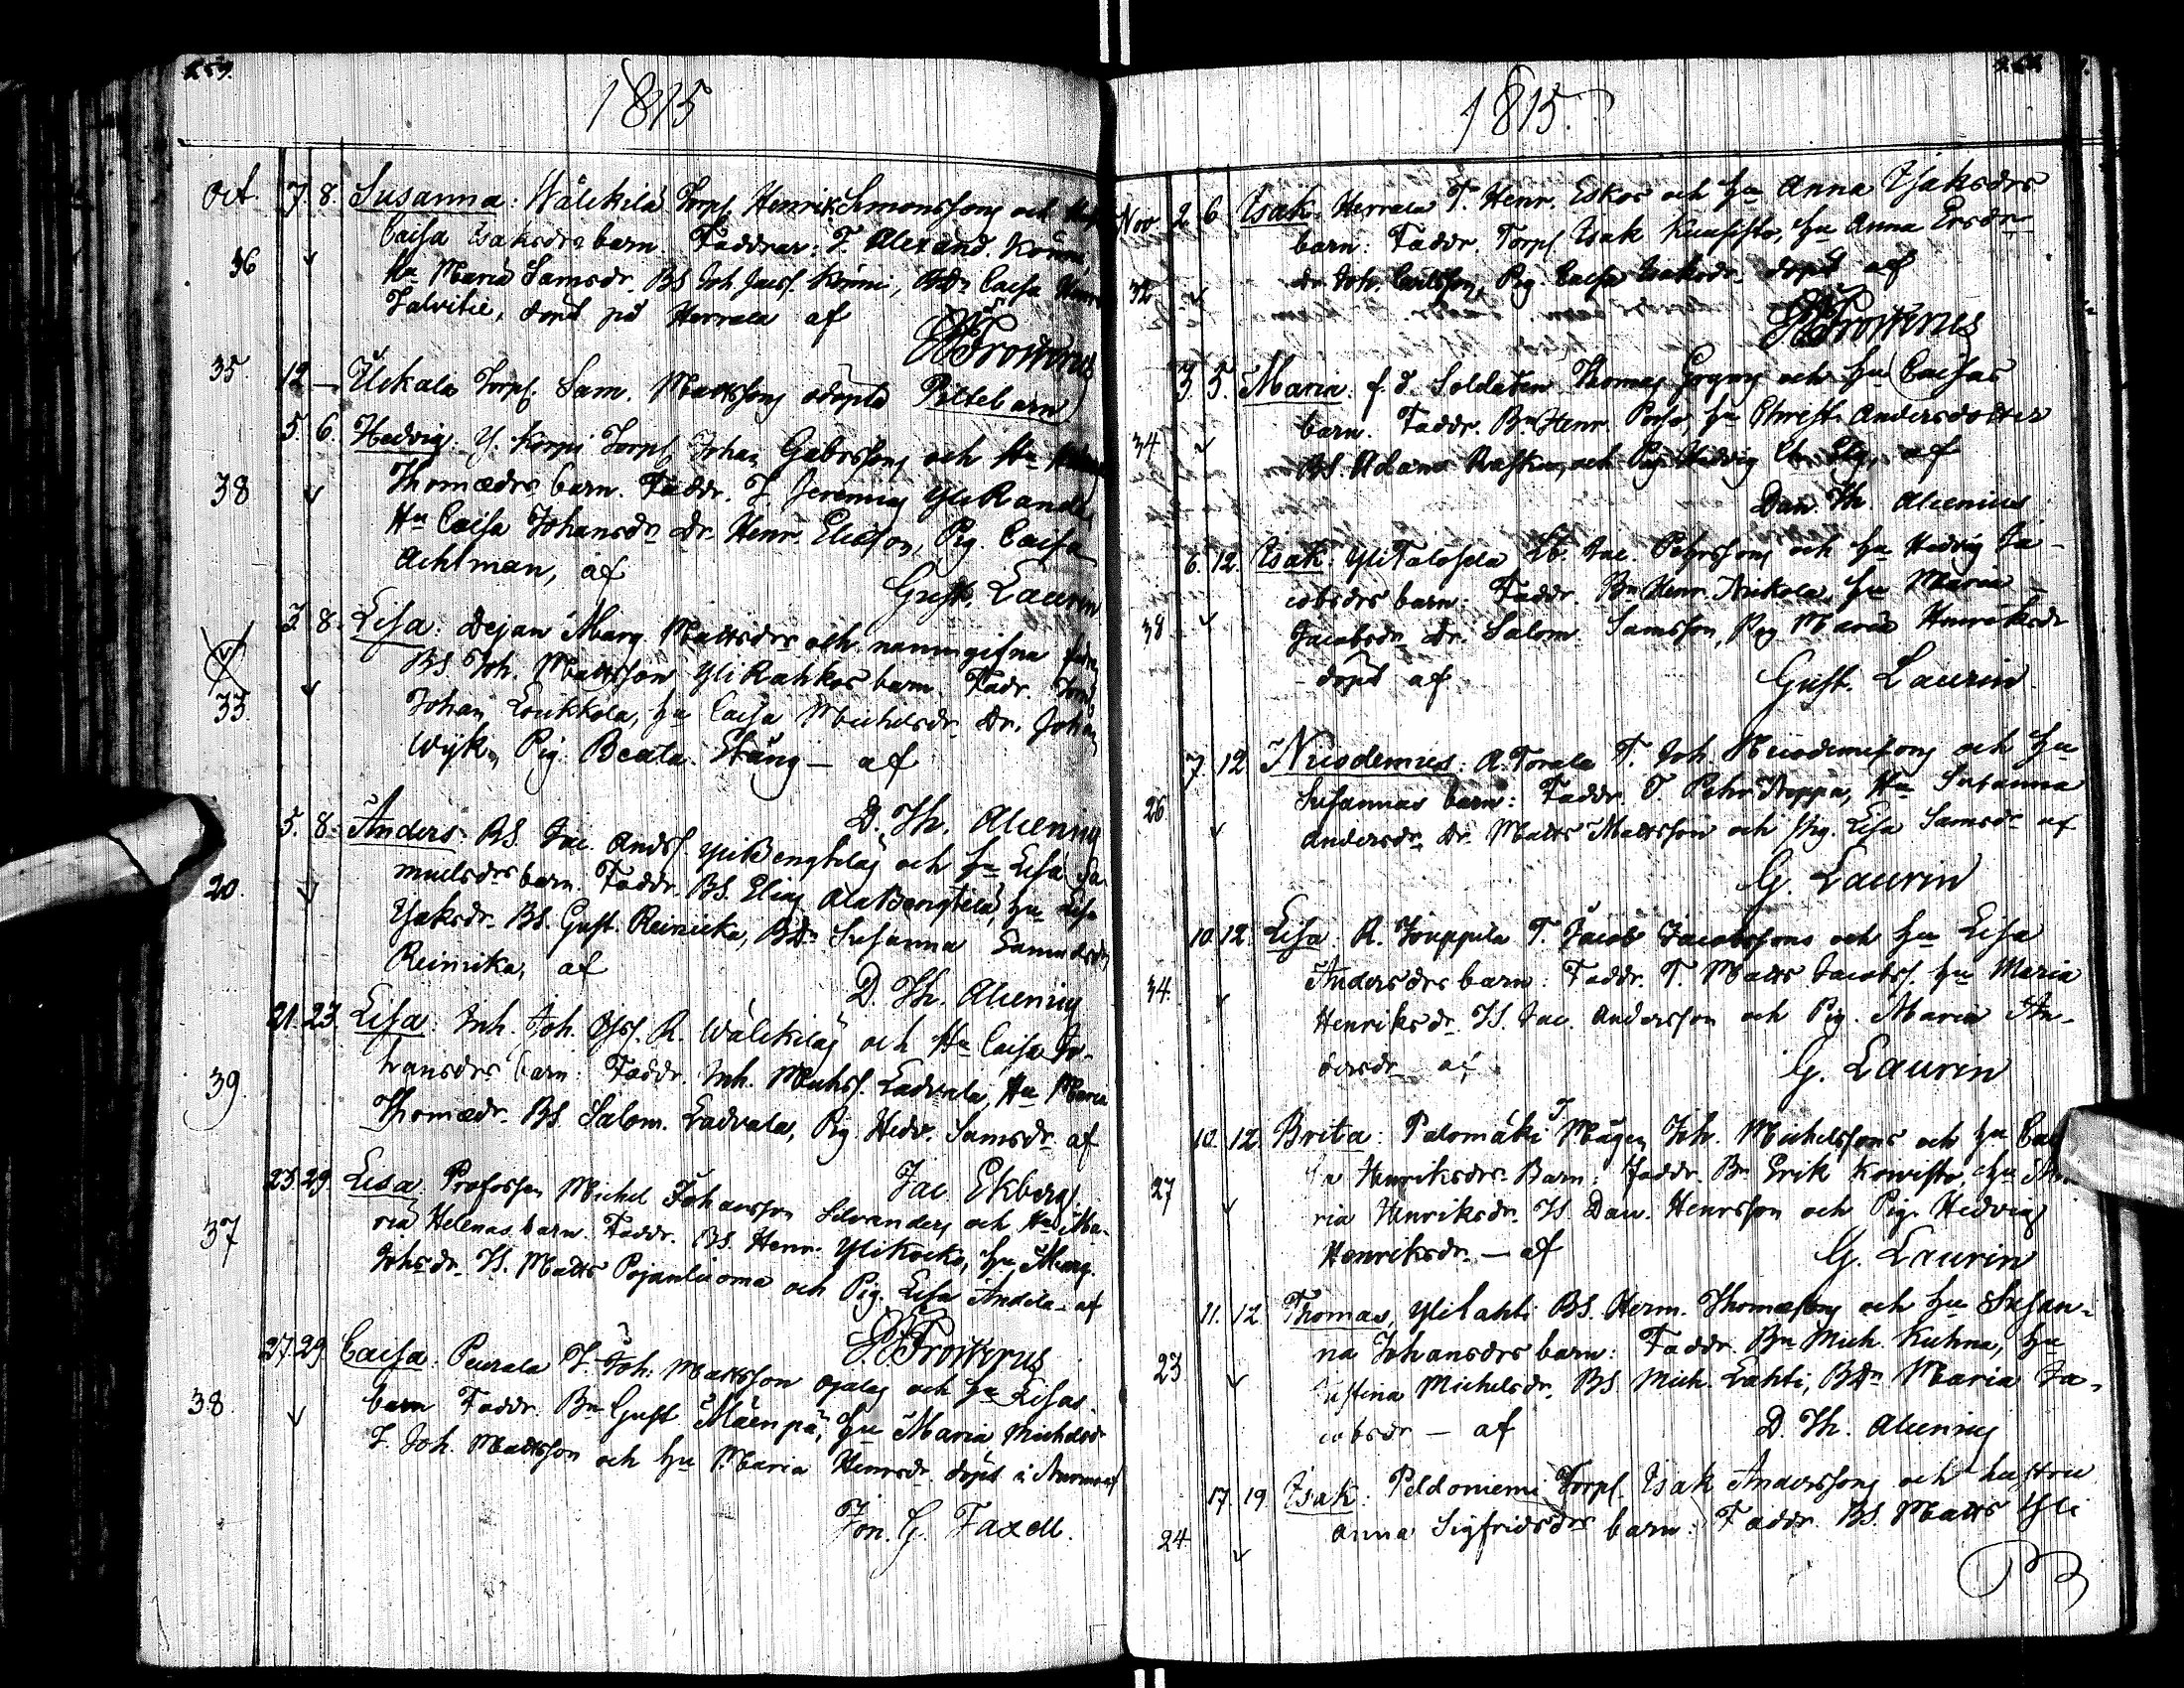 1815
Oct. 7. 8. Susanna: Wälikilä Torp. Henrik Simonssons och
Caisa Isaksdrs barn. Faddrar: T. Alexand.
36 Hu Maria Samsdr. BS Joh. Jacss. BDr Caisa
Talvitie, döpt på Herrala af
Frosterus
35 12 — Uckala Torp. Sam. Mattssons odöpta Piltebarn
5. 6. Hedvig. Y. Korpi Torp. Johan Gabrssons och Hu
38 Thomædrs barn. Faddr. T. Jeremias YliRanda
Hu Caisa Johansdr Dr. Henr. Eliasson, Pig. Caisa
Achtman, af
Gust. Laurin
3. 8. Lisa: Dejan Marg. Mattsdrs och namngifna
BS. Joh. Mattsson YliRahkos barn. Fadr.
33. Johan Loukkola, hu Caisa Michelsdr. Dr. Johan
Wijk, Pig. Beata Stång — af
D. Th. Alcenius
5. 8. Anders: BS. Jac. Andss. YliBengtilas och hu Lisa Sa-
20. muelsdrs barn. Faddr. BS. Elias AlaBengtilä, hu Lisa
Isaksdr. BS. Gust. Reinicka, BDr Susanna Samuelsdr
Reinicka, af
D. Th. Alcenius
21. 23. Lisa: Inh. Joh. R. Wälikilas och Hu Caisa Jo-
39. hansdrs barn: Faddr. Inh. Michss. Ladvala, Hu Maria
Thomædr. BS. Salom. Ladvala, Pig. Hedv. Samsdr. af
Jac Ekberg
23. 29. Lisa: Profossen Michel Johansson Silvanders och Hu Ma-
37 ria Helenas barn. Faddr. BS. Henr. YliKocko, hu Marg.
Johsdr. IS. Matts Pojanluoma och Pig. Lisa Andila — af
Frosterus
27. 29. Caisa: Peurala T. Joh. Mattsson Ojalas och hu Lisas
38. barn Faddr. Bn Gust Mäenpä, hu Maria Michelsdr
T. Joh. Mattsson och hu Maria Henrsdr. döpt i Nurmo af
Jon. G. Taxell.
1815.
Nov 2. 6. Isak. Herrala T. Henr. Eskos och hu Anna Isaksdrs
barn: Faddr. Torp. Isak Kuusisto, hu Anna Ersdr
32 dr. Joh. Carlsson, Pig. Caisa Isaksdr döpt af
Frosterus
3. 5. Maria. f. d. Soldaten Thomas och hu Caisas
barn. Faddr. Bn Henr. hu Christ. Andersdotter
34 BS. Adam och Pig. Hedvig af
Dan. Th. Alcenius
6. 12. Isak: YliTalosela Lb. Jac. Pehrssons och hu Hedvig Ja-
cobsdrs barn: Faddr. Bn Henr. Nickola, hu Maria
38 Jacobsdr, Dr. Salom. Samsson, Pig. Maria Henriksdr
— döpt af
Gust. Laurin
7. 12 Nicodemus: A. Torala T. Joh. Nicodemissons och hu
26 Susannas barn: Faddr. T. Pehr Hu Susanna
Andersdr. Dr. Matts Mattsson och Pig. Lisa Samsdr af
G. Laurin
10. 12. Lisa: R. Jouppila T. Jacob Jacobssons och hu Lisa
34. Andersdrs barn: Faddr. T. Matts Jacobss. hu Maria
Henriksdr. IS. Jac. Andersson och Pig. Maria An-
dersdr af
G. Laurin
10. 12. Brita: Palomäki Mågen Joh. Michelssons och hu Cai
27 sa Henriksdrs Barn: Faddr. Bn Erik Koivisto, hu Ma
ria Henriksdr. IS. Dan. Henrsson och Pig. Hedvig
Henriksdr. — af
G. Laurin
11. 12. Thomas, Ylilahti BS. Herm. Thomassons och hu Susan-
23 na Johansdrs barn: Faddr. Bn Mich. Kuhna, hu
Justina Michelsdr. BS Mich. Lahti, BDr Maria Ja-
cobsdr — af
D. Th. Alcenius
17. 19. Isak: Peldoniemi Torp. Isak Anderssons och hustru
24 Anna Sigfridsdrs barn: Faddr. BS. Matts Yli